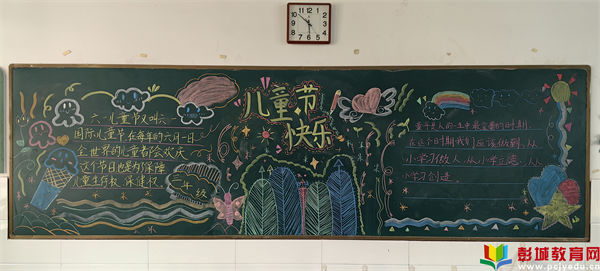 六一儿童节又叫六一
国际儿童节在每年的六月一日
全世界的儿童都会欢庆
这个节日也是为保障
儿童生存权、保健权
二年级
儿童节
快乐
童年是人的一生中最重要的时期,
在这个时期我们应该做到:从
小学习做人、从小学立志、从
小学习创造
彭城教育网
www.pcjyedu.cn